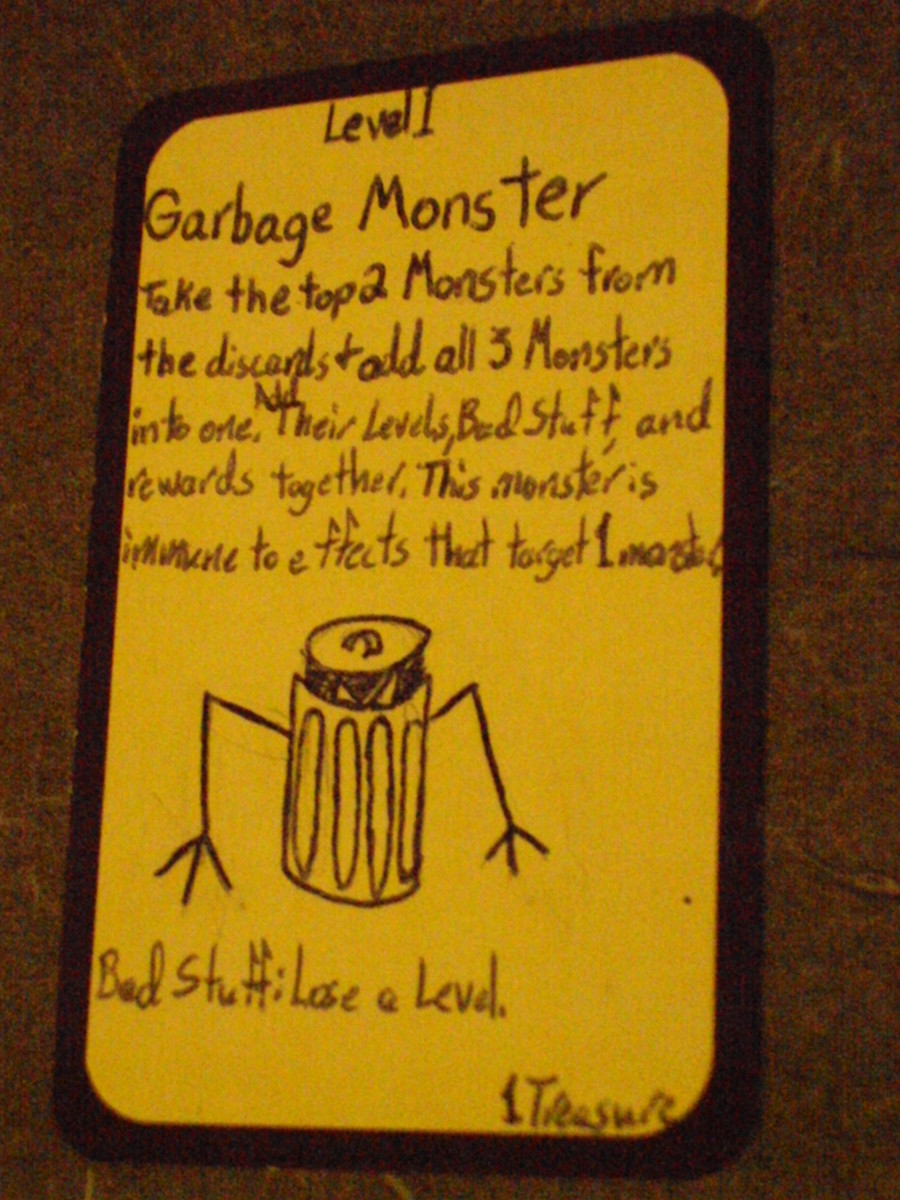 Level 1
Garbage Monster
Take the top 2 Monsters from
the discards + add all 3 Monsters
into one. Add Their Levels, Bad Stuff, and
rewards together. This monster is
immune to effects that target 1 monster.
Bad Stuff: Lose a Level.
1 Treasure